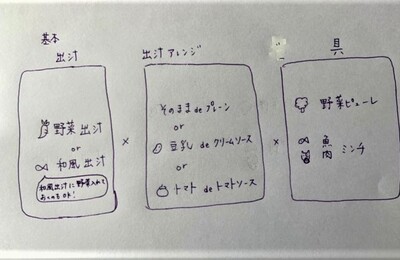 基本
出汁
野菜出汁
or
和風出汁
和風出汁に野菜入れて
×
出汁アレンジ
そのまま de プレーン
or
豆乳 de クリームソース
or
トマト de トマトソース
×
具
野菜ピューレ
魚
肉
ミンチ